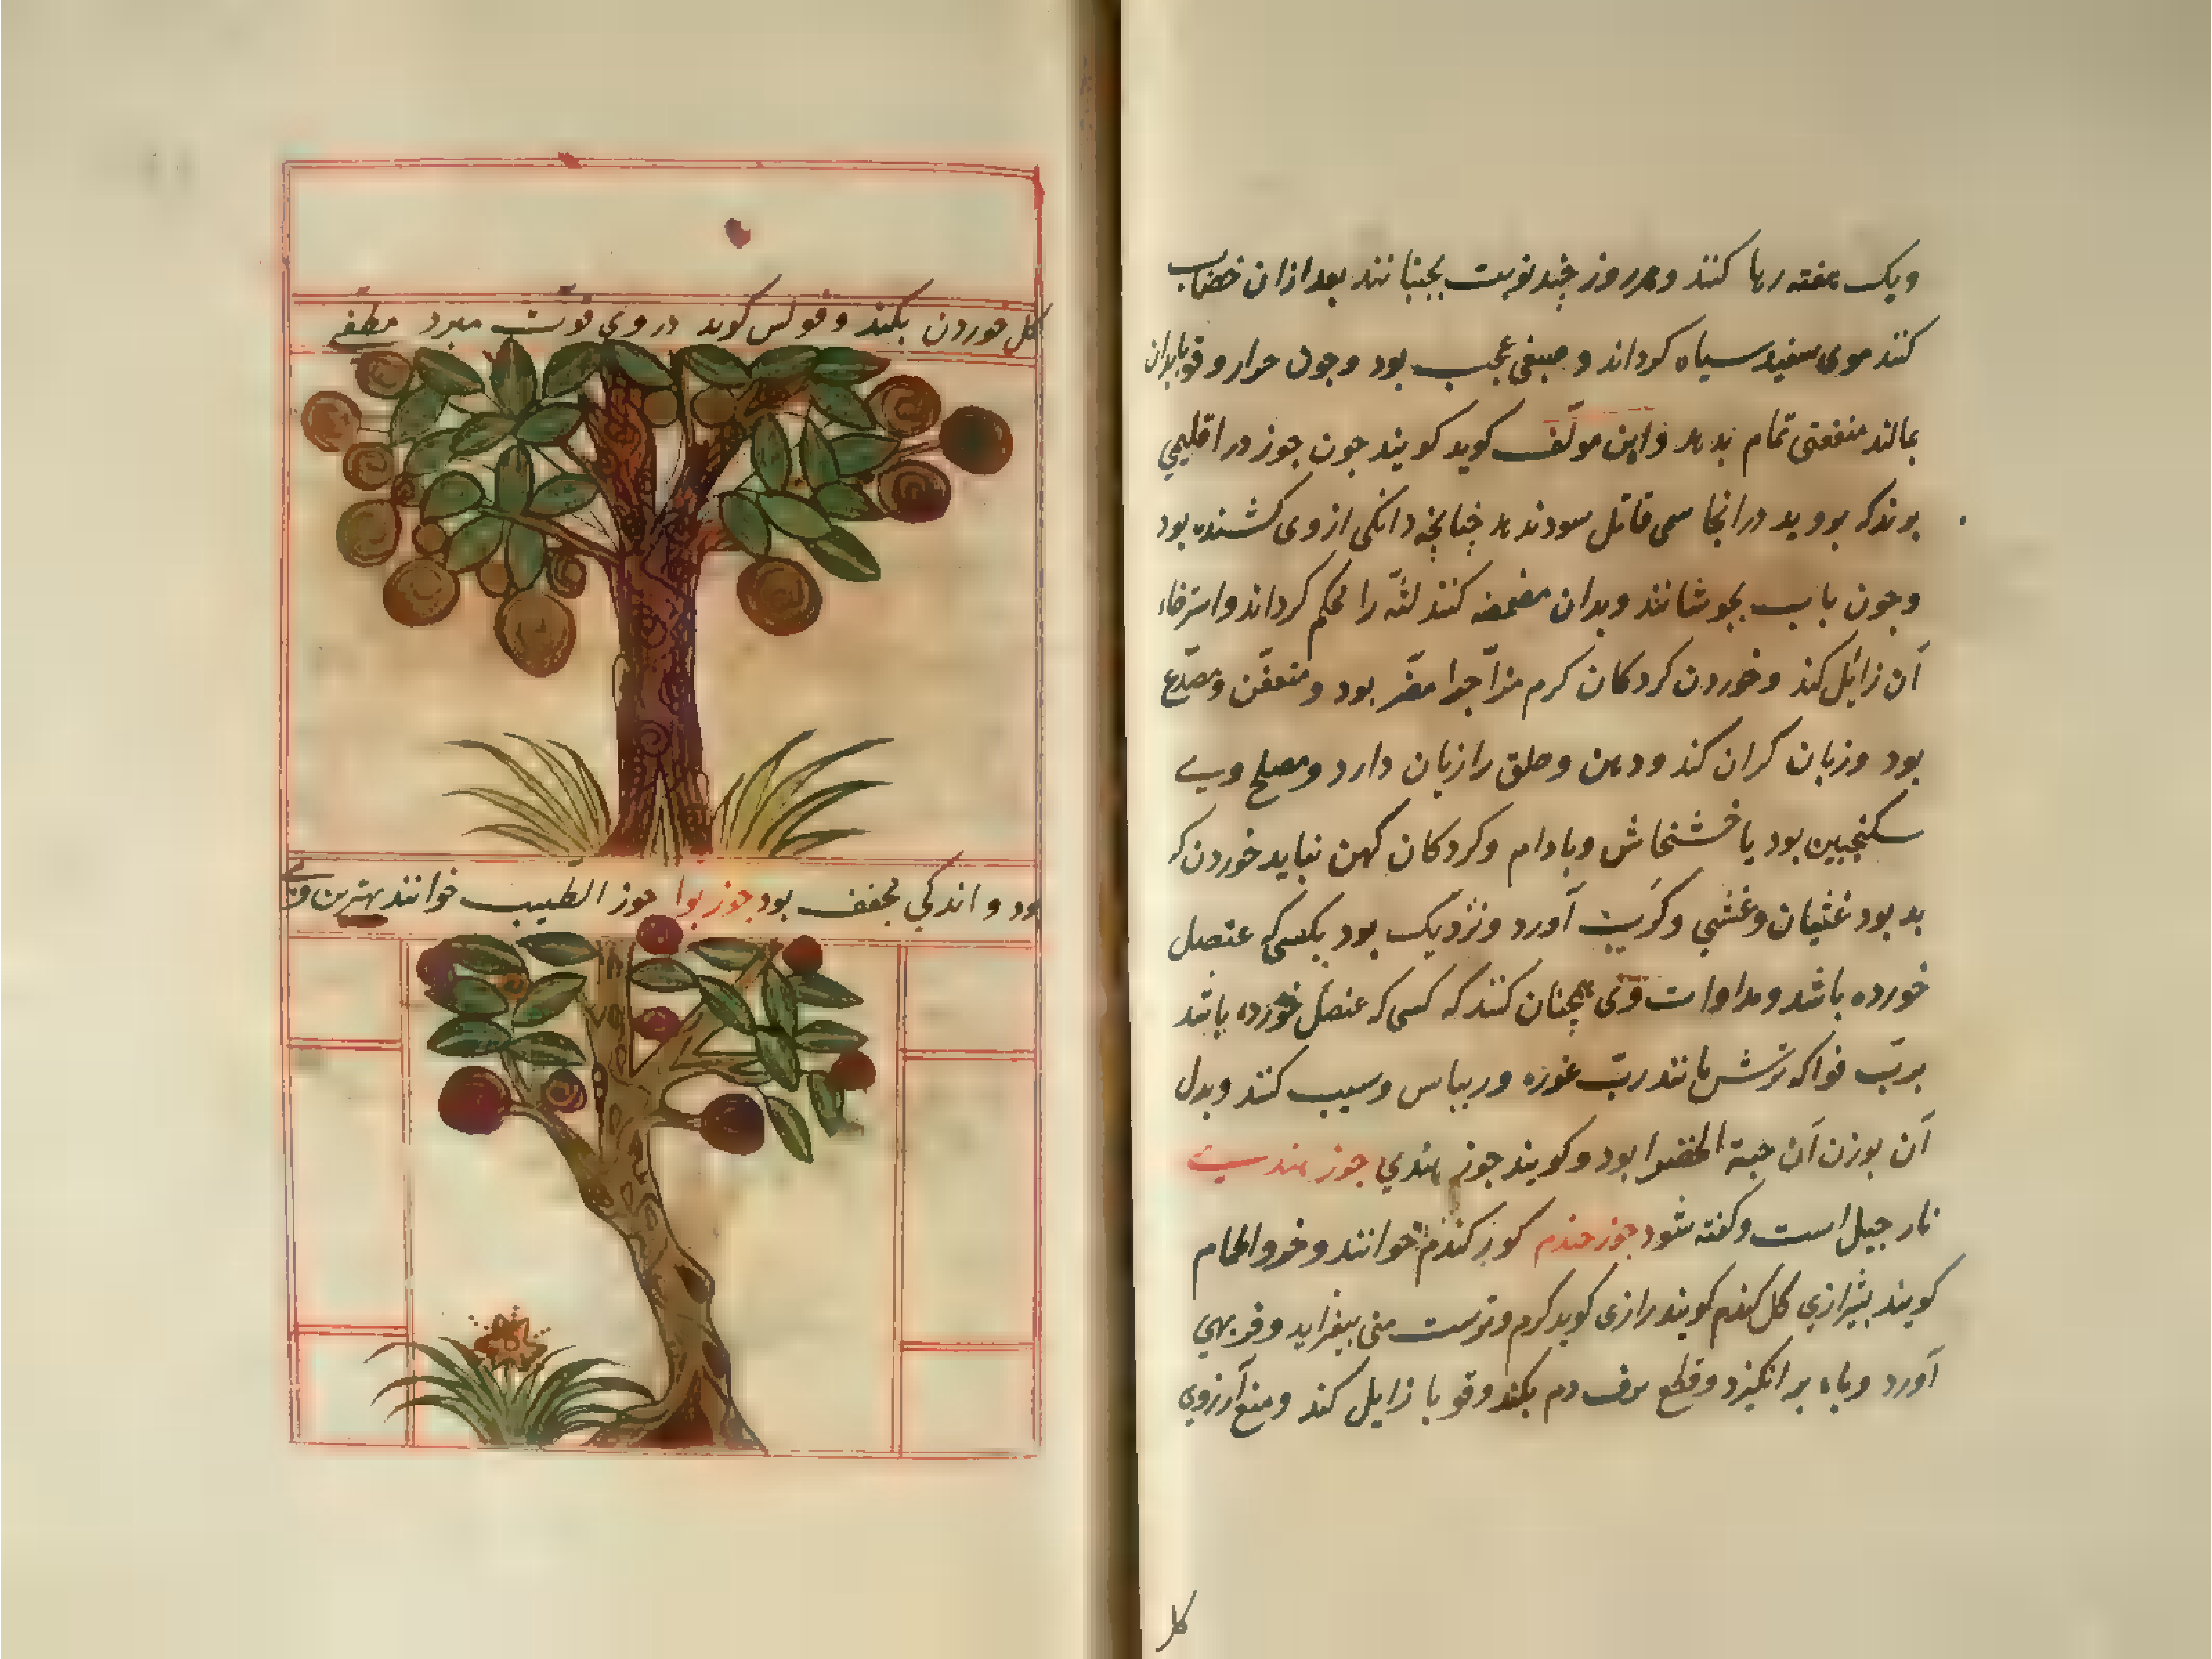 ویک هفته رها کنند و هر روز چند نوبت بجنبانند بعد ازان خضاب
کنند موی سفید سیاه کرداند و صبغی عجب بود و چون حرار و قوبا بدان
بمالند منفعتی تمام بدهد و این مولّف کوید کویند چون جوز در اقلیمی
بوند که بروید در انجا سمی قاتل سودند چنانچه دانکی از وی کشنده بود
وچون باب بجوشانند و بدان مضمضه کنند لثّه را محکم کرداند و استرخاء
آن زایل کند و خوردن کردکان کرم مزاجرا مضّر بود و متعفّن و مصدّع
بود و زبان کران کند و دهن و حلق را زیان دارد و مصلح وی
سکنجبین بود یا خشخاش و بادام و کردکان کهن نباید خوردن که
بد بود غثیان و غشی و کرب آورد و نزدیک بود بکسی که عنصل
خورده باشد و مداوات وی همچنان کنند که کسی که عنصل خورده باشد
بربّ فواکه ترش مانند ربّ غوره و ریباس و سیب کنند و بدل
آن بوزن آن حبة الخضرا بود و کویند جوز هندی جوز هندی
نارجیل است و کفته شود جوز جندم کوز کندم خوانند و خرو الحمام
کویند بشیرازی کل کندم کویند رازی کوید کرم و ترست منی بیفزاید و فربهی
آورد و باه بر انکیزد و قطع نزف دم بکند و قوبا زایل کند و منع آرزوی
کل
کل خوردن بکند و فولس کوید در وی قوّت مبرد مطفی
بود و اندکی مجفف بود جوز بوا جوز الطیب خوانند بهترین وی